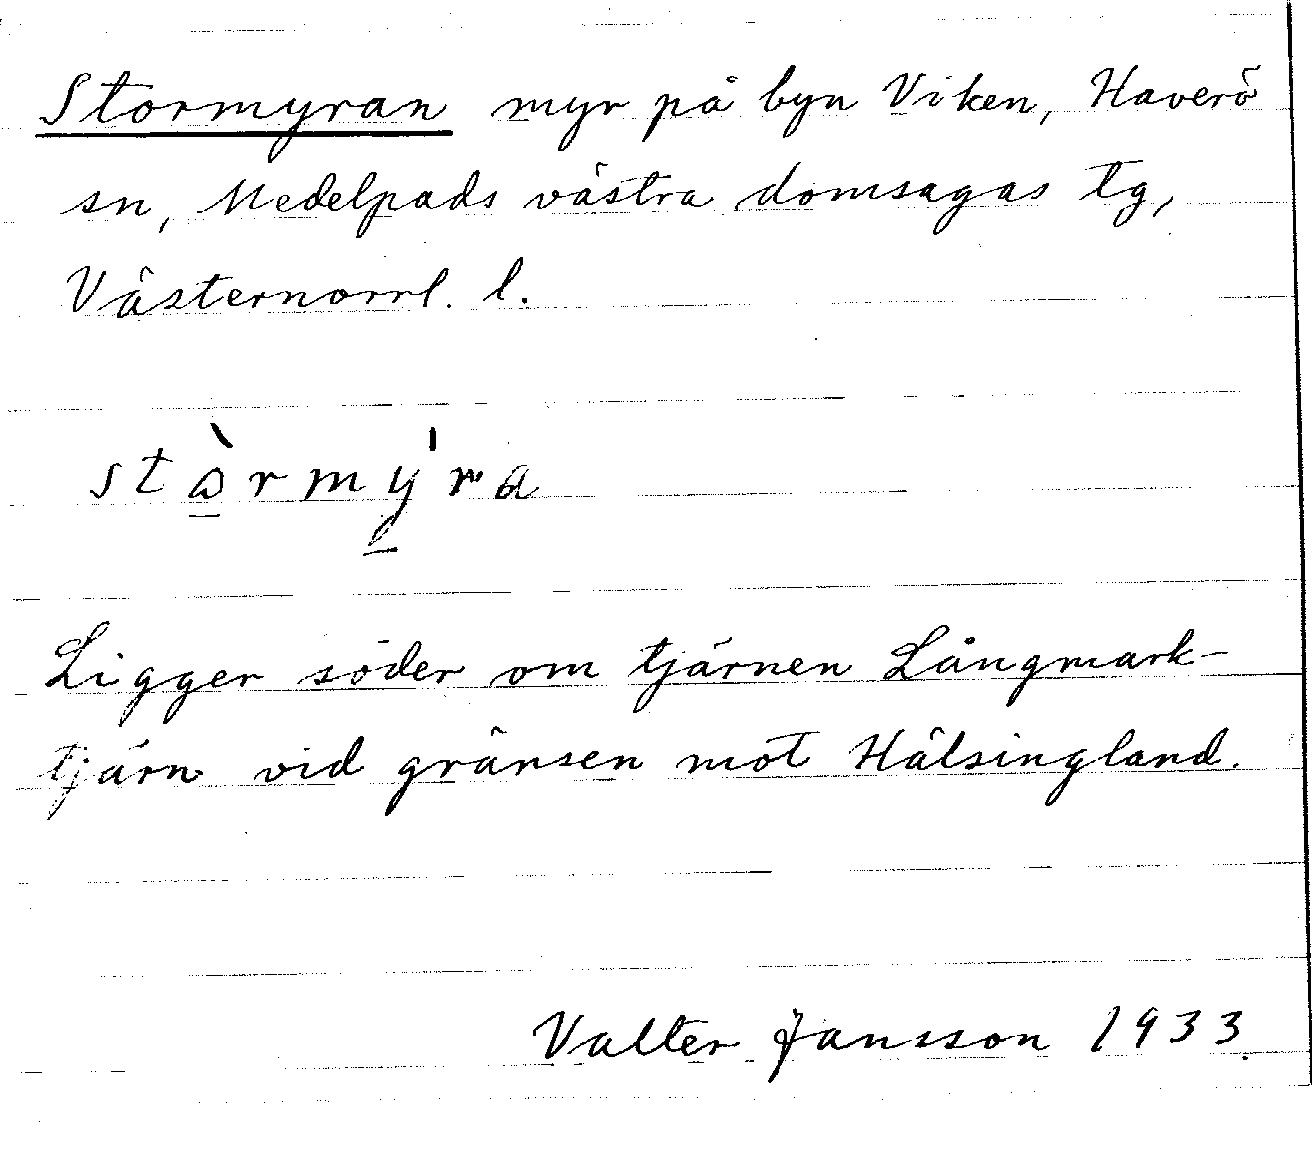 Stormyran myr på byn Viken, Haverö
sn, Medelpads västra domsagas tg,
Västernorrl. l.
stɷ̱̀rmy̱̍ra
Ligger söder om tjärnen Långmark-
tjärn vid gränsen mot Hälsingland.
Valter Jansson 1933.